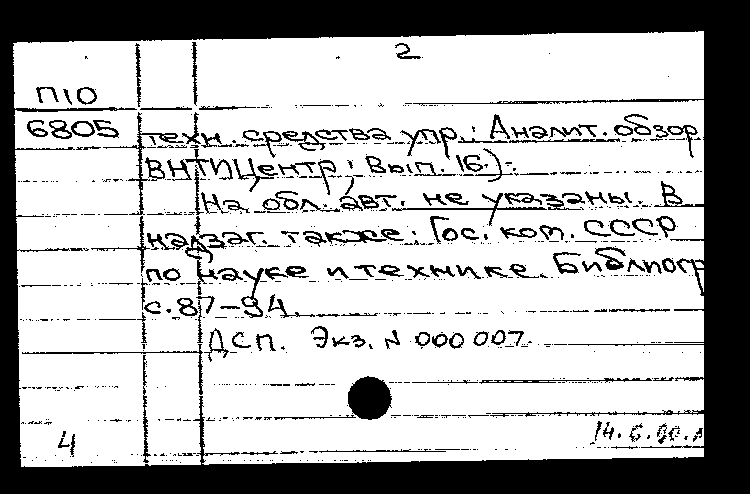 2
П10
6805
техн. средства упр.: Аналит. обзор
ВНТИЦентр; Вып. 16.)-.
На обл. авт. не указаны. В
надзаг. также: Гос. ком. СССР
по науке и технике. Библиогр
с. 87-94.
ДСП. Экз. N 000 007.
4
14.6.90.